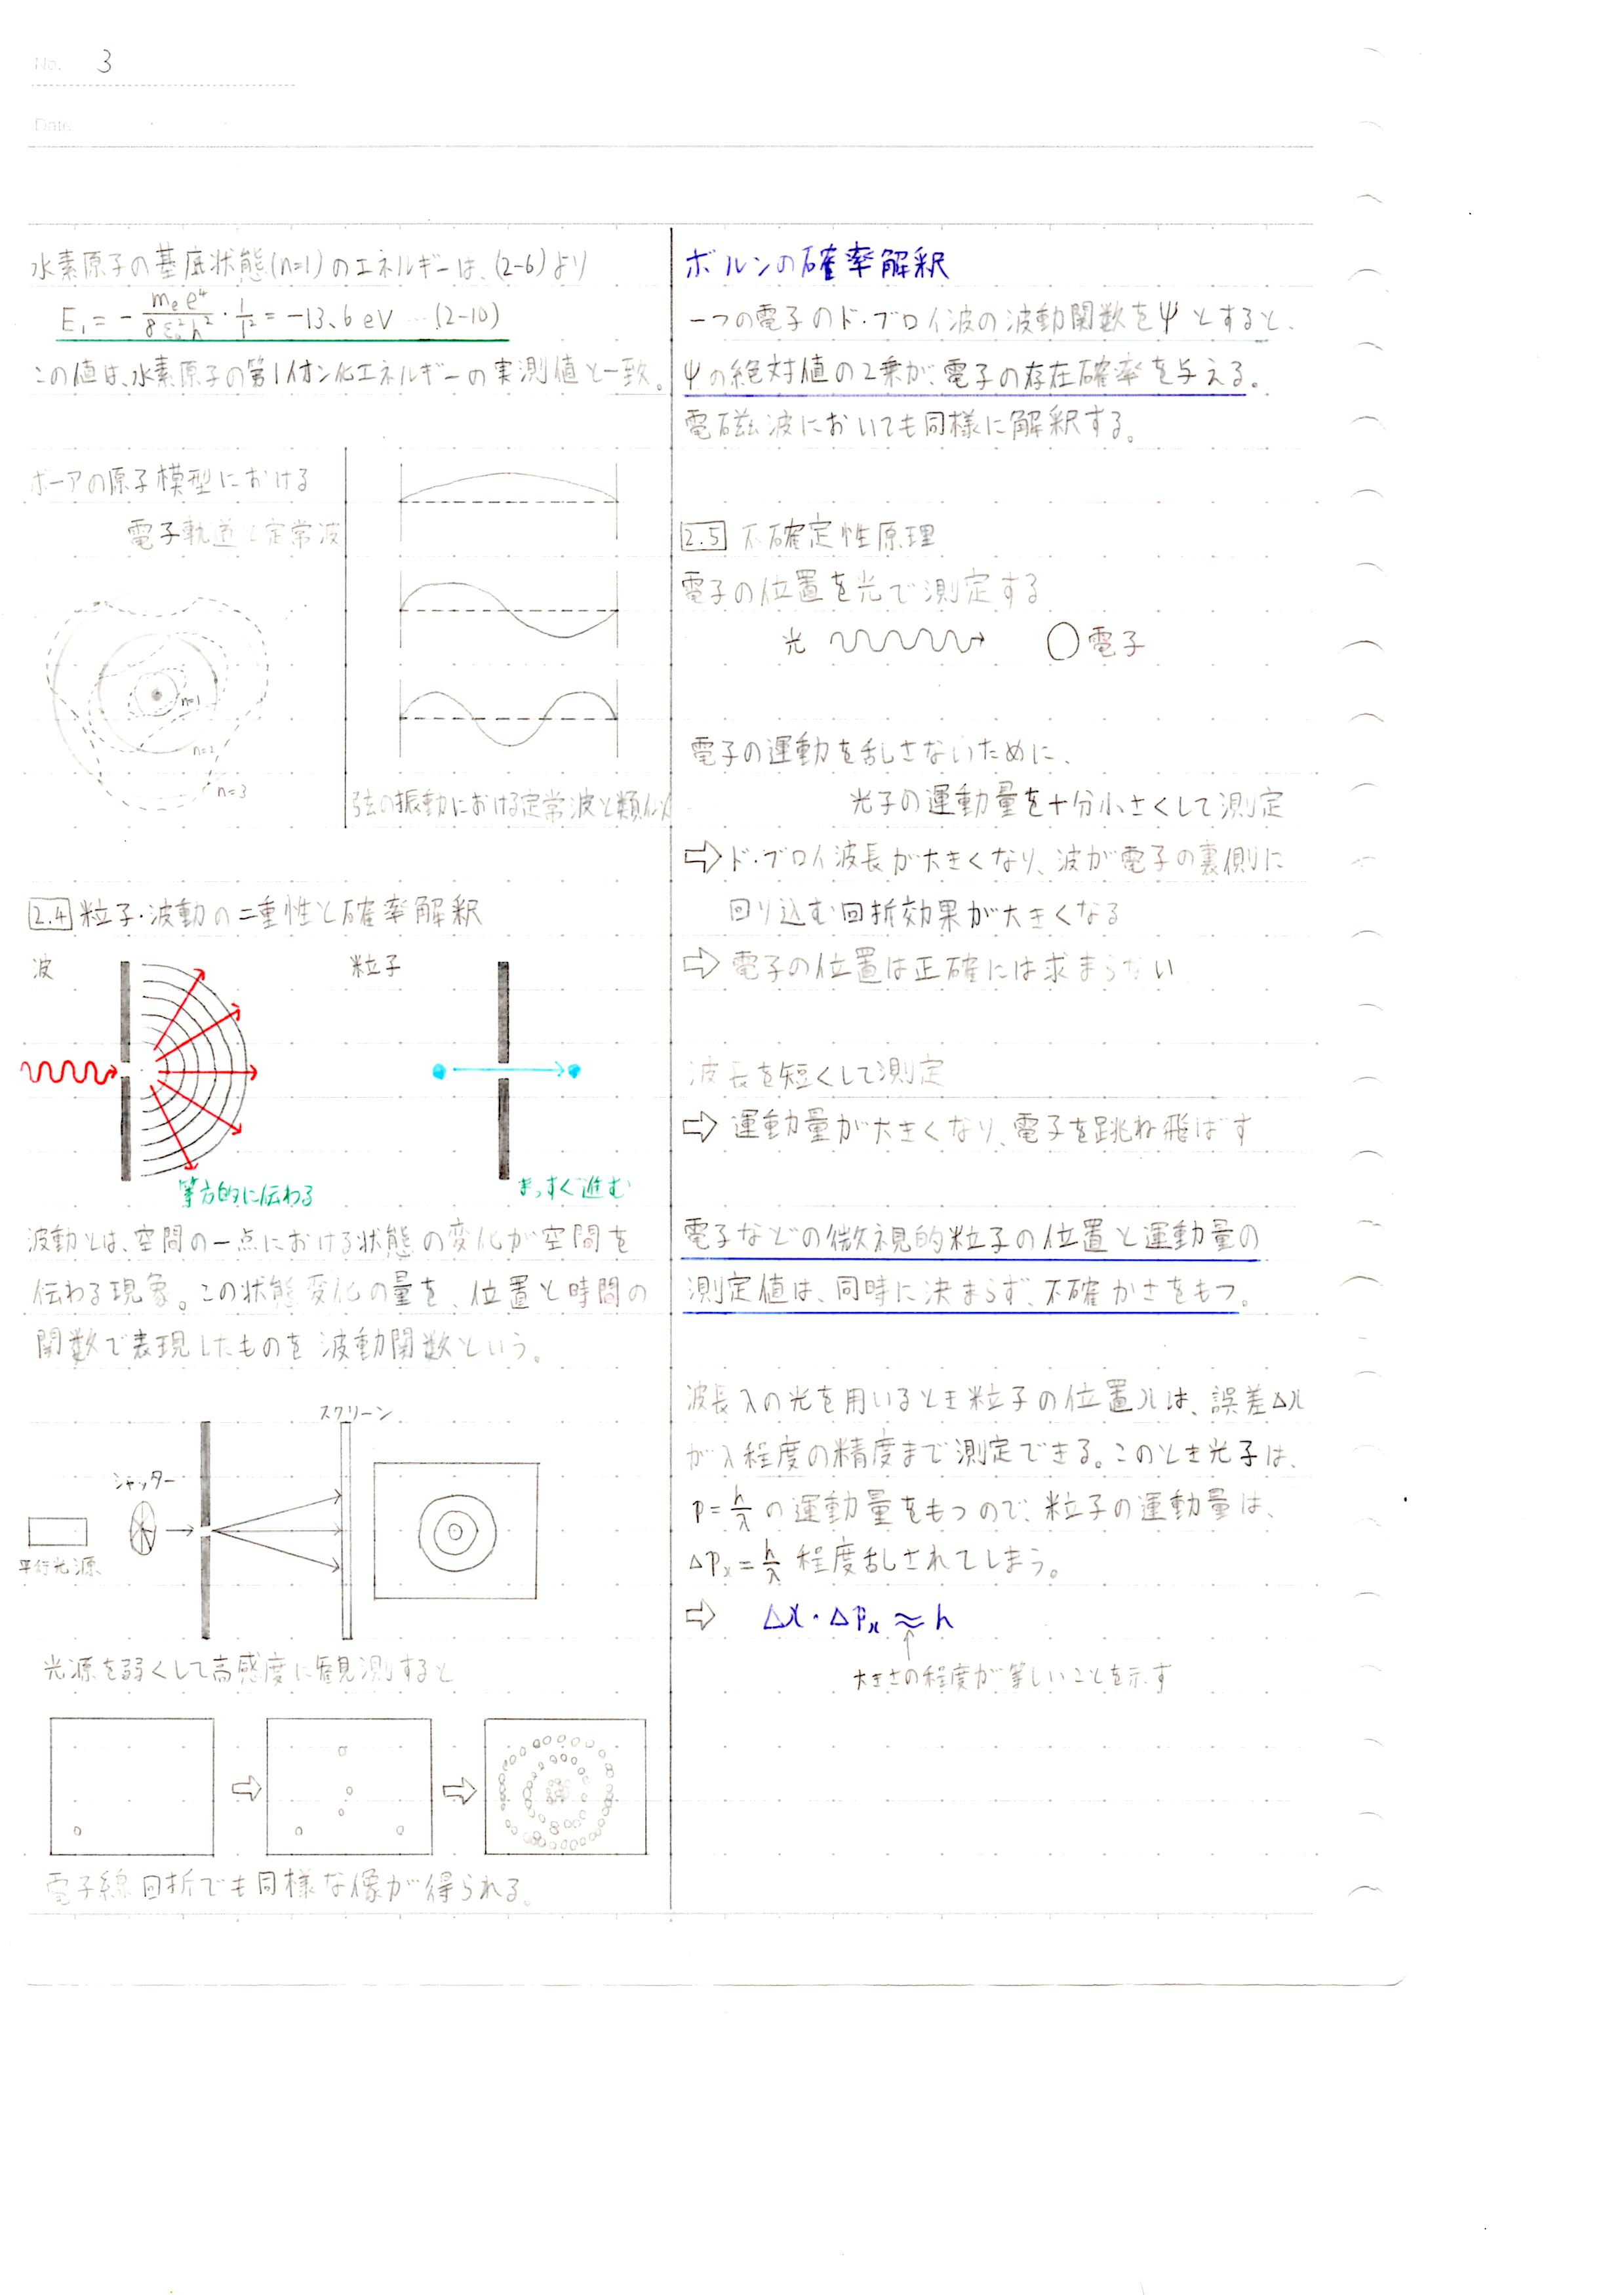 No. 3
Date
水素原子の基底状態(n=1)のエネルギーは、(2-6)より
E₁ = - mₑe⁴/8ε₀²h² · 1/1² = -13.6 eV … (2-10)
この値は、水素原子の第1イオン化エネルギーの実測値と一致。
ボーアの原子模型における
電子軌道と定常波
n=1
n=2
n=3
弦の振動における定常波と類似
2.4 粒子・波動の二重性と確率解釈
波
粒子
等方的に伝わる
まっすぐ進む
波動とは、空間の一点における状態の変化が空間を
伝わる現象。この状態変化の量を、位置と時間の
関数で表現したものを波動関数という。
スクリーン
シャッター
平行光源
光源を弱くして高感度に観測すると
電子線回折でも同様な像が得られる。
ボルンの確率解釈
一つの電子のド・ブロイ波の波動関数をψとすると、
ψの絶対値の2乗が、電子の存在確率を与える。
電磁波においても同様に解釈する。
2.5 不確定性原理
電子の位置を光で測定する
光 電子
電子の運動を乱さないために、
光子の運動量を十分小さくして測定
⇨ ド・ブロイ波長が大きくなり、波が電子の裏側に
回り込む回折効果が大きくなる
⇨ 電子の位置は正確には求まらない
波長を短くして測定
⇨ 運動量が大きくなり、電子を跳ね飛ばす
電子などの微視的粒子の位置と運動量の
測定値は、同時に決まらず、不確かさをもつ。
波長λの光を用いるとき粒子の位置xは、誤差Δx
がλ程度の精度まで測定できる。このとき光子は、
p=h/λの運動量をもつので、粒子の運動量は、
Δpₓ=h/λ程度乱されてしまう。
⇨ Δx・Δpₓ≈h
↑
大きさの程度が等しいことを示す